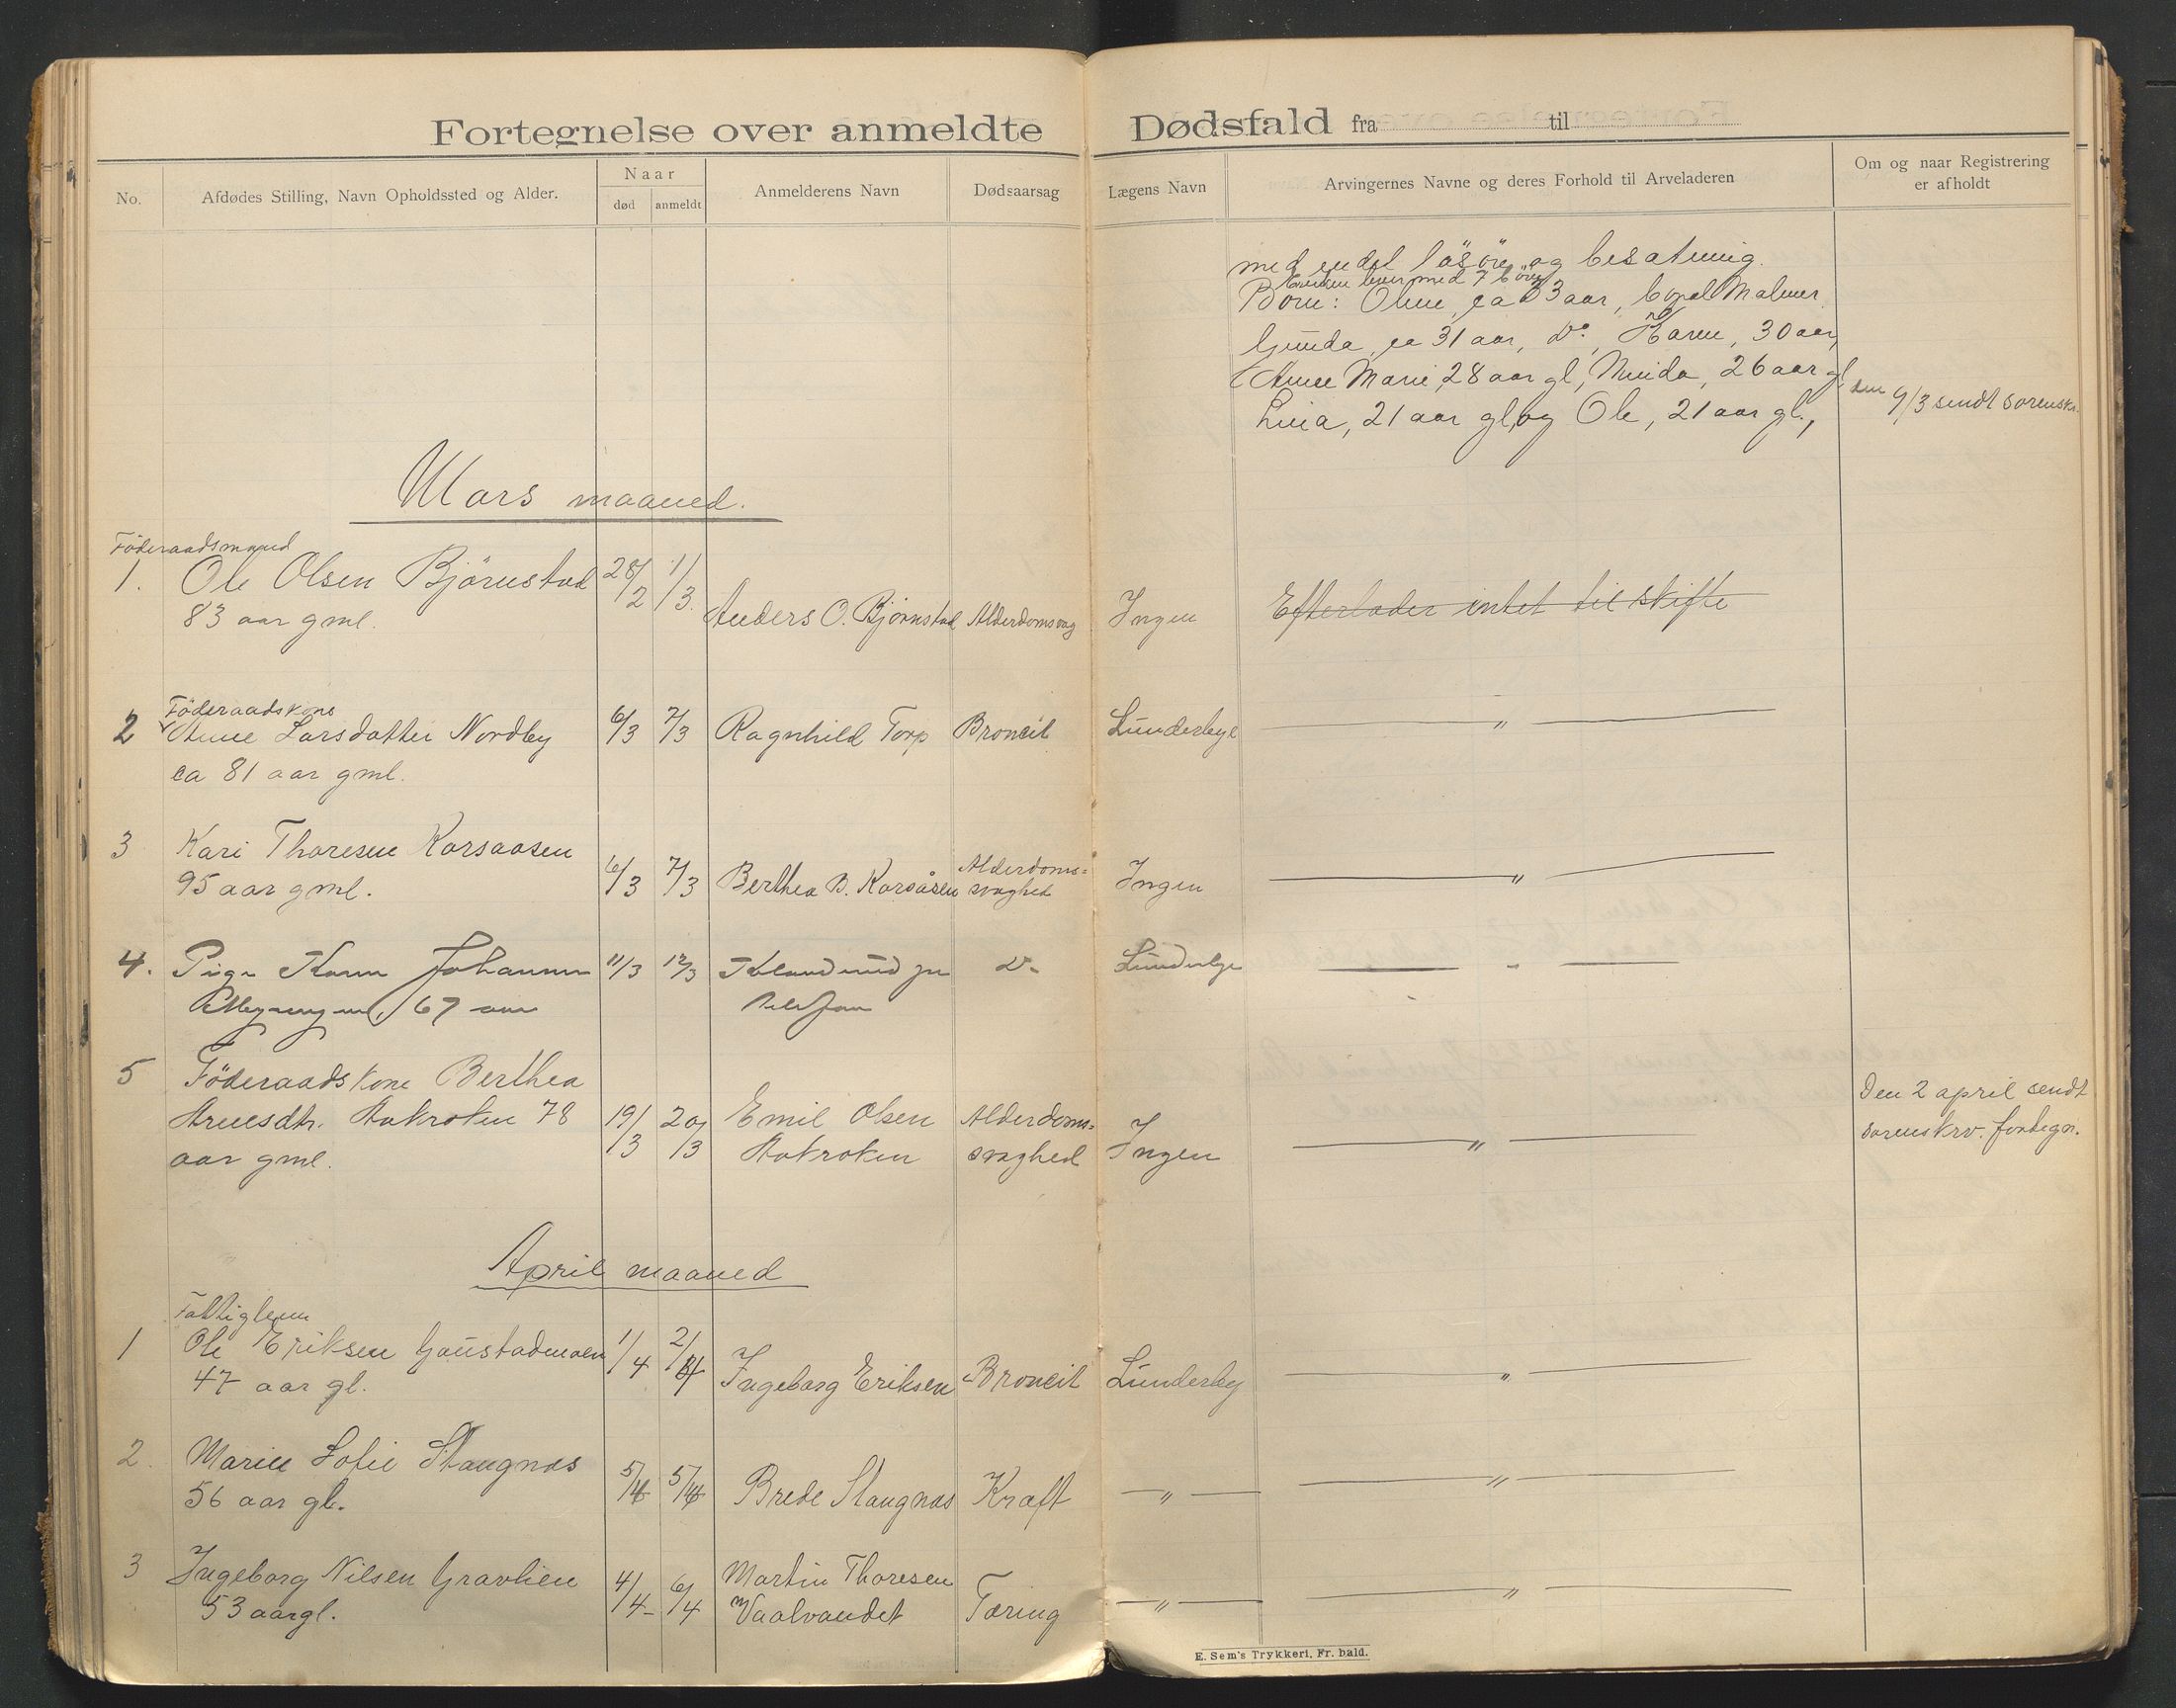 Fortegnelse over anmeldte Dødsfald fra til
No.
Afdødes Stilling, Navn Opholdssted og Alder.
Naar
død
anmeldt
Anmelderens Navn
Dødsaarsag
Lægens Navn
Arvingernes Navne og deres Forhold til Arveladeren
Om og naar Registrering
er afholdt
med endel løsøre og besætning.
Enken lever med 7 børn
Børn: Oline, ca 33 aar, Malmer
Gunda, ca 31 aar, Do, Karen, 30 aar,
Anne Marie, 28 aar gl, 26 aar gl,
Lina, 21 aar gl, og Ole, 21 aar gl.,
den 9/3 sendt sorenskr.
Mars maaned.
Föderaadsmand
1. Ole Olsen Björnstad 28/2 1/3
83 aar gml. Anders O. Bjørnstad Alderdomsvag Ingen Efterlader intet til skifte
Föderaadskone
2 Anne Larsdatter Nordby 6/3 7/3 Ragnhild Torp Broncit Lünderbye — " —
ca 81 aar gml.
3 Kari Thoresen Korsaasen
95 aar gml. 6/3 7/3 Berthea B. Korsåsen Alderdoms=
svaghed Ingen — " —
4. Pige Karen Johannen 11/3 12/3 D. Lünderbye — " —
67 aar
5 Föderaadskone Berthea
Arnesdtr. Aakroken 78 19/3 20/3 Emil Olsen Alderdoms=
aar gml. Aakroken svaghed Ingen — " —
Den 2 april sendt
sorenskrv. fortegn.
April maaned
Fattiglem
1 Ole Eriksen Gaustadmoen 1/4 2/4
47 aar gl. Ingeborg Eriksen Broncit Lünderby — " —
2. Marie Sofie Stangnæs
56 aar gl. 5/4 5/4 Brede Stangnæs Kræft — " — — " —
3 Ingeborg Nilsen Gravlien 4/4 6/4 Martin Thoresen
53 aar gl. Vaalvandet Tæring — " — — " —
E. Sem's Trykkeri, Fr. hald.